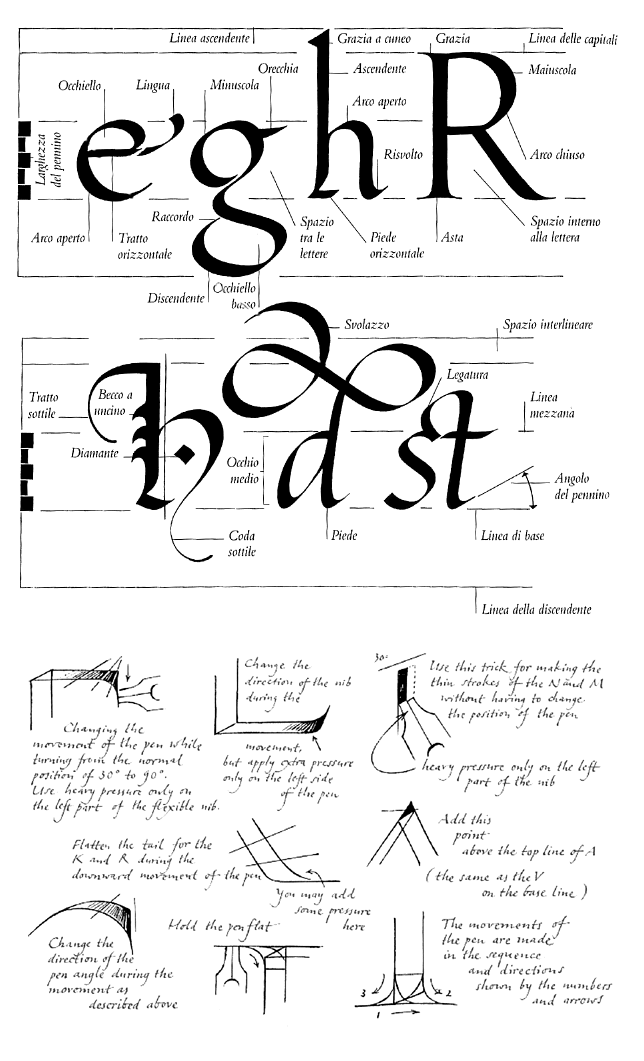 Linea ascendente
Grazia a cuneo
Grazia
Linea delle capitali
Orecchia
Ascendente
Maiuscola
Occhiello
Lingua
Minuscola
Arco aperto
Larghezza
del pennino
e g h R
Risvolto
Arco chiuso
Raccordo
Arco aperto
Tratto
orizzontale
Spazio
tra le
lettere
Piede
orizzontale
Asta
Spazio interno
alla lettera
Discendente
Occhiello
basso
Svolazzo
Spazio interlineare
Legatura
Tratto
sottile
Becco a
uncino
Linea
mezzana
Diamante
h d st
Occhio
medio
Angolo
del pennino
Coda
sottile
Piede
Linea di base
Linea della discendente
Changing the
movement of the pen while
turning from the normal
position of 30° to 90°.
Use heavy pressure only on
the left part of the flexible nib.
Change the
direction of the nib
during the
movement,
but apply extra pressure
only on the left side
of the pen
30°
Use this trick for making the
thin strokes of the N and M
without having to change
the position of the pen
heavy pressure only on the left
part of the nib
Flatten the tail for the
K and R during the
downward movement of the pen
You may add
some pressure
here
Add this
point
above the top line of A
(the same as the V
on the base line)
Change the
direction of the
pen angle during the
movement as
described above
Hold the pen flat
The movements of
the pen are made
in the sequence
and directions
shown by the numbers
and arrows
3
2
1